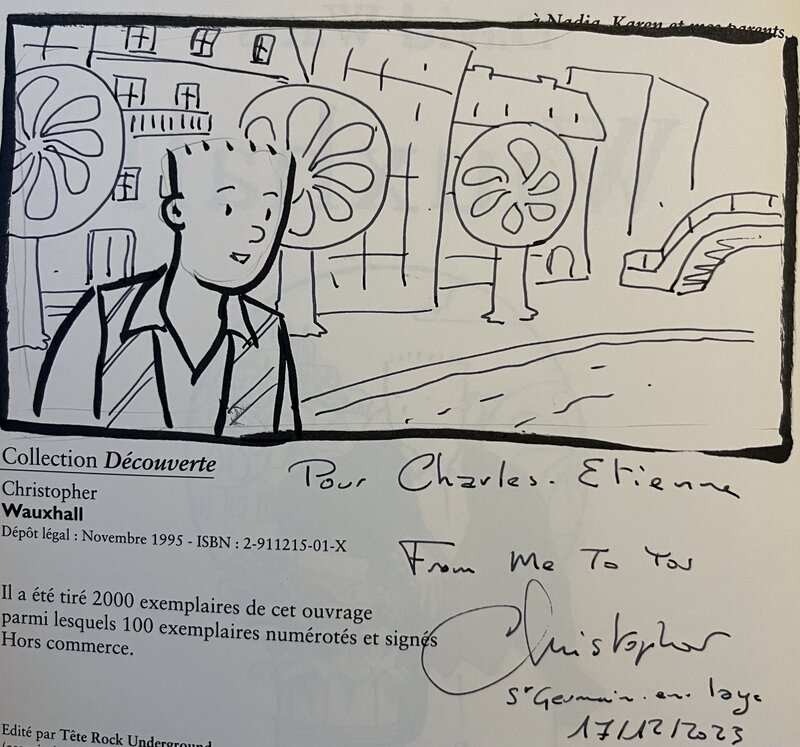 à Nadia, Karen et mes parents.
Collection Découverte
Pour Charles-Etienne
Christopher
Wauxhall
Dépôt légal : Novembre 1995 - ISBN : 2-911215-01-X
From Me To You
Il a été tiré 2000 exemplaires de cet ouvrage
parmi lesquels 100 exemplaires numérotés et signés
Hors commerce.
Christopher
St Germain-en-laye
17/12/2023
Edité par Tête Rock Underground